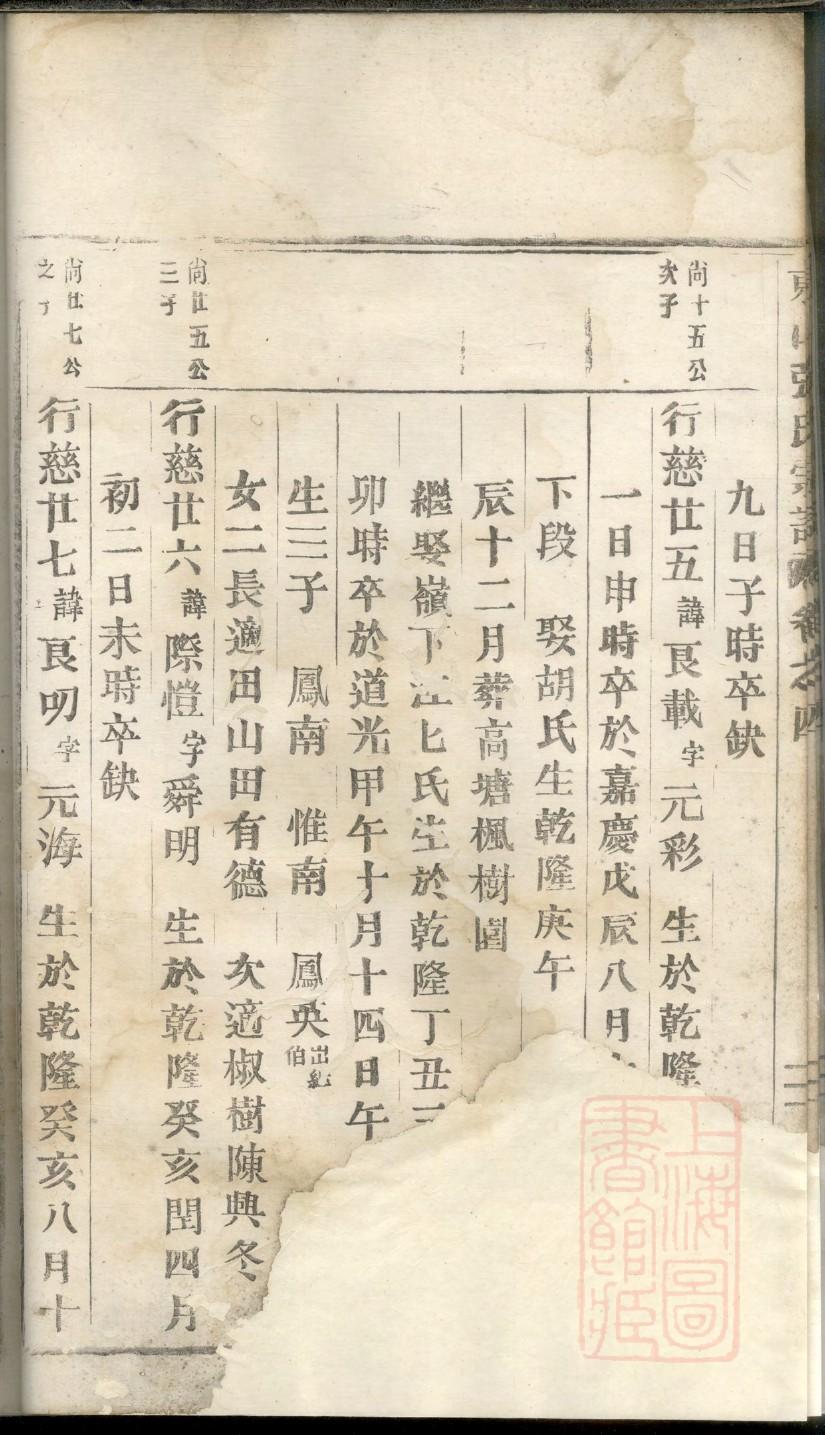 張氏宗譜
卷之四
九日子時卒缺
尚十五公
次子
行慈廿五諱艮載字元彩 生於乾隆
一日申時卒於嘉慶戊辰八月
下段 娶胡氏生乾隆庚午
辰十二月葬高塘楓樹園
繼娶嶺下江氏生於乾隆丁丑三
卯時卒於道光甲午十月十四日午
生三子 鳳南 惟南 鳳英出紹伯
女二長適田山田有德 次適椒樹陳興冬
尚廿五公
三子
行慈廿六諱際愷字舜明 生於乾隆癸亥閏四月
初二日未時卒缺
尚廿七公
之子
行慈廿七諱艮叨字元海 生於乾隆癸亥八月十
上海圖
書館藏